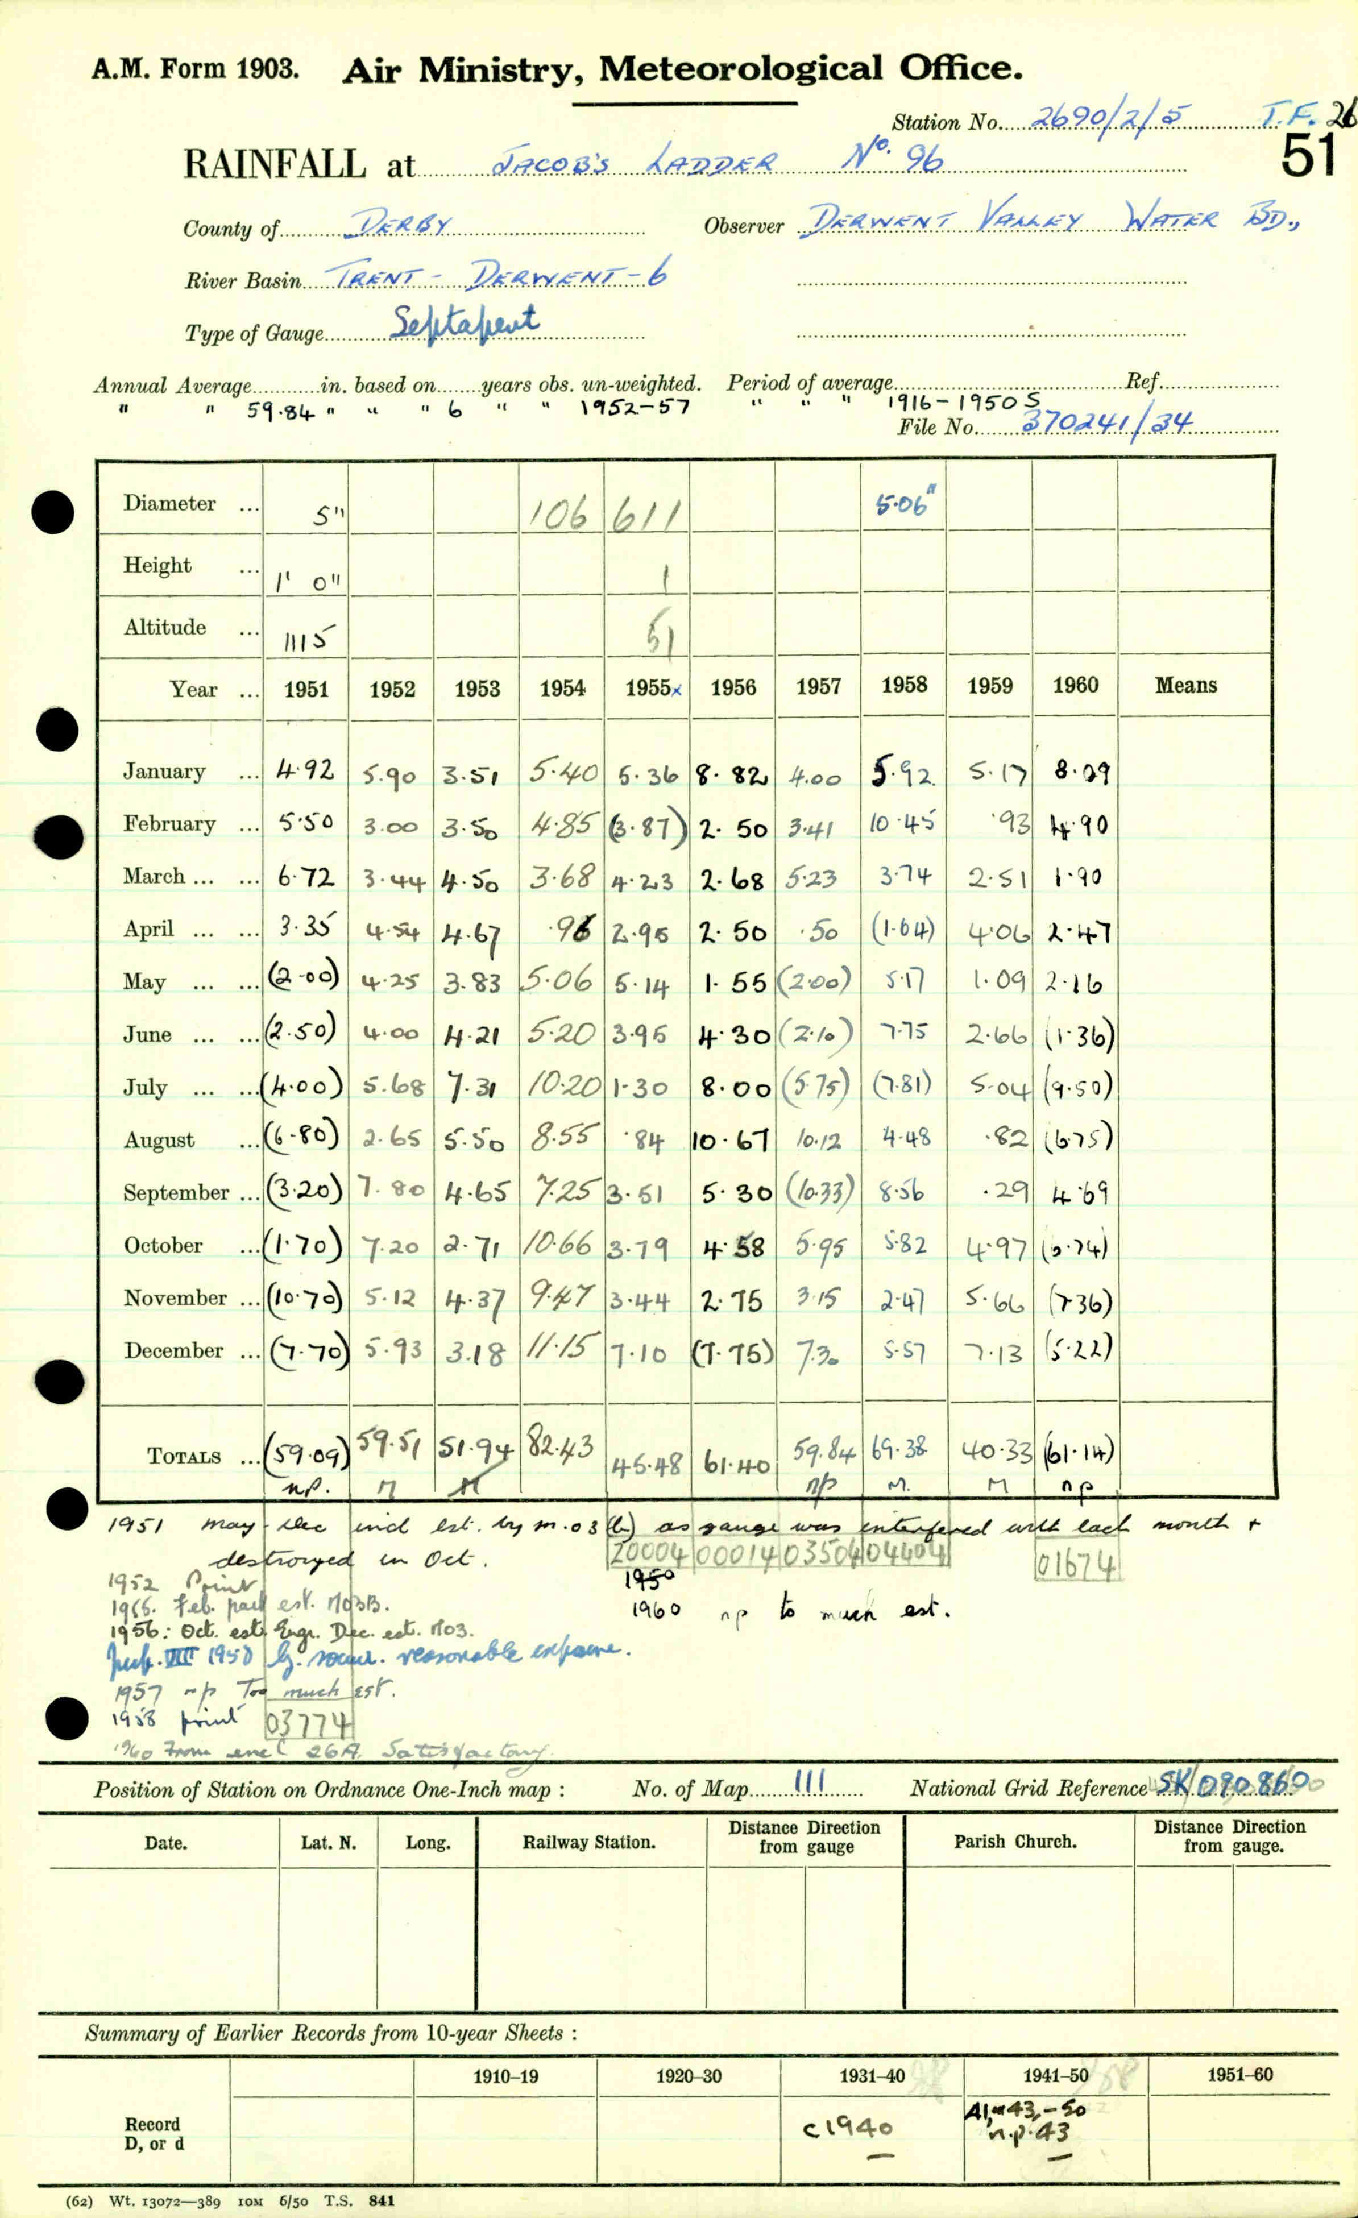 A.M. Form 1903. Air Ministry, Meteorological Office.
Station No. 2690/2/5 T.F. 26
RAINFALL at JACOB'S LADDER No. 96 51
County of DERBY Observer DERWENT VALLEY WATER BD.,
River Basin TRENT - DERWENT - 6
Type of Gauge Septapent
Annual Average in. based on years obs. un-weighted. Period of average Ref.
" " 59.84 " " " 6 " " 1952-57 " " " 1916-1950 S
File No. 370241/34
Diameter ... 5" 106 611 5.06"
Height ... 1' 0" 1
Altitude ... 1115 51
Year ... 1951 1952 1953 1954 1955x 1956 1957 1958 1959 1960 Means
January ... 4.92 5.90 3.51 5.40 5.36 8.82 4.00 5.92 5.17 8.09
February ... 5.50 3.00 3.50 4.85 (3.87) 2.50 3.41 10.45 .93 4.90
March ... ... 6.72 3.44 4.50 3.68 4.23 2.68 5.23 3.74 2.51 1.90
April ... ... 3.35 4.54 4.67 .96 2.95 2.50 .50 (1.64) 4.06 2.47
May ... ... (2.00) 4.25 3.83 5.06 5.14 1.55 (2.00) 5.17 1.09 2.16
June ... ... (2.50) 4.00 4.21 5.20 3.95 4.30 (2.10) 7.75 2.66 (1.36)
July ... ... (4.00) 5.68 7.31 10.20 1.30 8.00 (5.75) (7.81) 5.04 (9.50)
August ... (6.80) 2.65 5.50 8.55 .84 10.67 10.12 4.48 .82 (6.75)
September ... (3.20) 7.80 4.65 7.25 3.51 5.30 (10.33) 8.56 .29 4.69
October ... (1.70) 7.20 2.71 10.66 3.79 4.58 5.95 5.82 4.97 (6.74)
November ... (10.70) 5.12 4.37 9.47 3.44 2.75 3.15 2.47 5.66 (7.36)
December ... (7.70) 5.93 3.18 11.15 7.10 (7.75) 7.30 5.57 7.13 (5.22)
TOTALS ... (59.09) 59.51 51.94 82.43 45.48 61.40 59.84 69.38 40.33 (61.14)
n.p. M M np M. M np
1951 May - Dec incl est. by m.o3(b) as gauge was interfered with each month +
destroyed in Oct. 20004 00014 03504 04404 01674
1952 Print 1950
1955. Feb. part est. M03B. 1960 np to much est.
1956: Oct. est. Engr. Dec. est. M03.
Insp. III 1950 reasonable exposure.
1957 np Too much est.
1958 print 03774
1960 From encl 26A Satisfactory.
Position of Station on Ordnance One-Inch map : No. of Map 111 National Grid Reference SK 090 860
Date. Lat. N. Long. Railway Station. Distance Direction from gauge Parish Church. Distance Direction from gauge.
Summary of Earlier Records from 10-year Sheets :
1910–19 1920–30 1931–40 1941–50 1951–60
Record D, or d c1940 41, 43, - 50
n.p. 43
(62) Wt. 13072—389 10M 6/50 T.S. 841